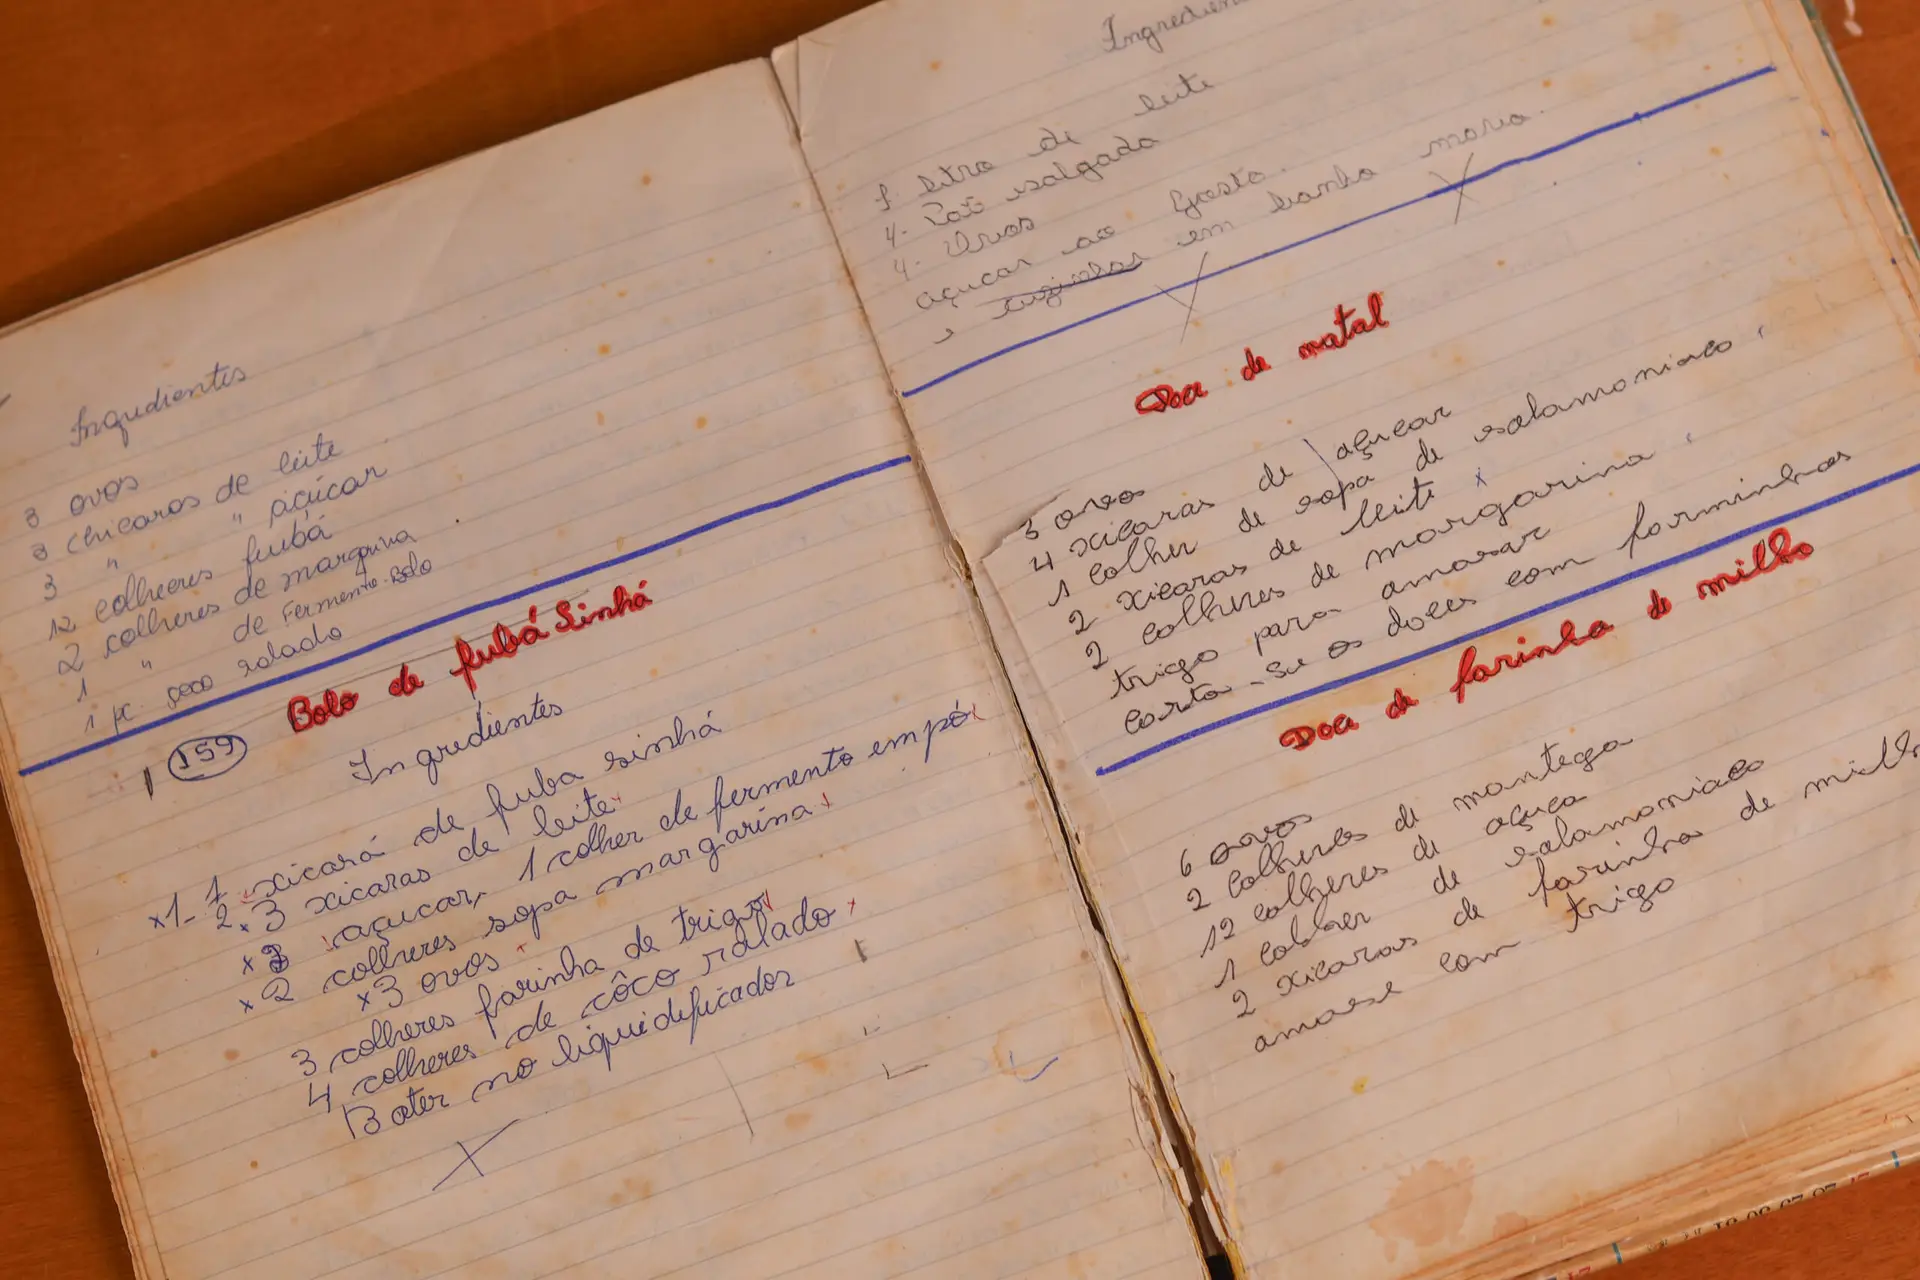 Ingredientes
3 ovos
3 chicaras de leite
3 " " açúcar
12 colheres fubá
2 colheres de margarina
1 " de Fermento. Bolo
1 pc. coco ralado
159
Bolo de fubá Sinhá
Ingredientes
x1- 1 xicará de fuba sinhá
2. 3 xicaras de leite
x açucar, 1 colher de fermento em pó
x2 colheres sopa margarina
x3 ovos
3 colheres farinha de trigo
4 colheres de côco ralado
Bater no liquidificador
X
1. litro de leite
4. Pão salgado
4. Ovos
açucar ao gosto.
cuzinhar em banho maria.
Doce de natal
3 ovos
4 xicaras de açucar
1 colher de sopa de salamoniaco
2 xicaras de leite x
2 colheres de margarina
trigo para amasar
corta-se os doces com forminhas
Doce de farinha de milho
6 ovos
2 colheres de mantega
12 colheres de açuca
1 colher de salamoniaco
2 xicaras de farinha de
amase com trigo